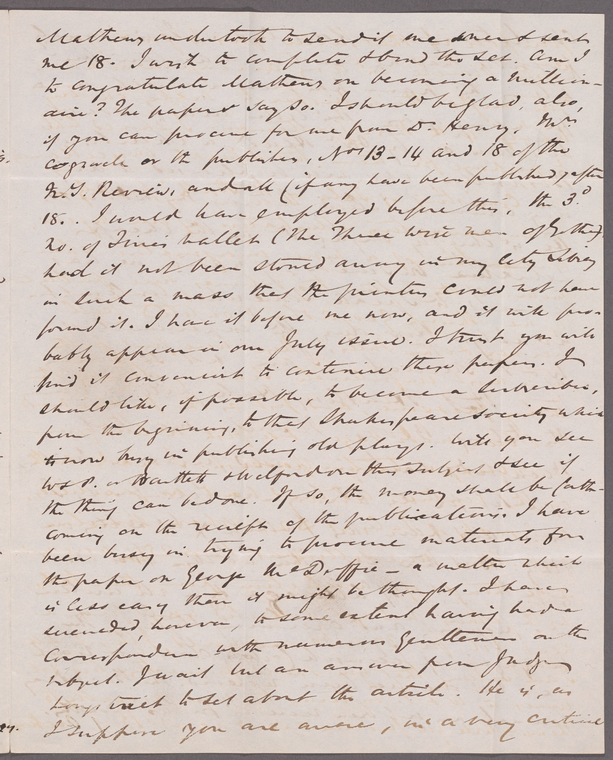 Mathews undertook to send if me ones & sent
me 18. I wish to complete & bend the set. Am I
to congratulate Mathews on becoming a million-
aire? The papers say so. I should be glad, also,
if you can procure for me from Dr. Henry, Mr.
or the publisher, Nos 13 - 14 and 18 of the
Review, and all (if any have been published) after
18. I would have employed before this, the 3d
no. of Ballets (The Three Wise men of Gotham)
had it not been stowed away in my City Library
in such a mass that the printers could not have
found it. I have it before me now, and it will pro-
bably appear in our July issue. I trust you will
find it convenient to continue these papers. I
should like, if possible, to become a subscriber,
from the beginning, to that Shakespeare Society which
is now busy in publishing old plays. Will you see
W & P. or Bartlett & Welford on this subject & see if
the thing can be done. If so, the money shall be forth-
coming on the receipt of the publications. I have
been busy in trying to procure materials for
the paper on George McDuffie - a matter which
is less easy than it might be thought. I have
succeeded, however, to some extent, having had a
correspondence with numerous Gentlemen on the
subject. I wait but an answer from Judge
Longstreet to set about the article. He is, as
I suppose you are aware, in a very critical